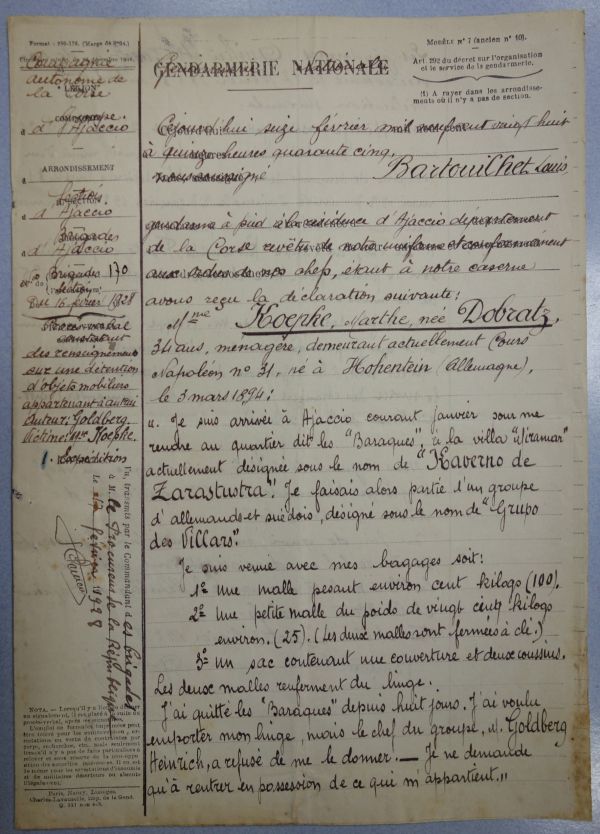 Format : 290-370. (Marge de 8mm.)
Compagnie
autonome de
LÉGION
la Corse
COMPAGNIE
d'Ajaccio
ARRONDISSEMENT
Section
d'Ajaccio
Brigades
d'Ajaccio
No Brigades 170
Du 16 février 1928
Procès-verbal
constatant
des renseignements
sur une détention
d'objets mobiliers
appartenant à autrui
Auteur: Goldberg
Victime: Mme Koepke.
1. Expédition
Vu, transmis par le Commandant d'es brigades
à M. le Procureur de la République
le février 1928
NOTA. — Lorsqu'il y a
Paris, Nancy, Limoges.
Charles-Lavauzelle, imp. de la Gend.
MODÈLE No 7 (ancien no 10).
Art. 292 du décret sur l'organisation
et le service de la gendarmerie.
(1) A rayer dans les arrondisse-
ments où il n'y a pas de section.
GENDARMERIE NATIONALE
Cejourd'hui seize février mil neuf cent vingt huit
à quinze heures quarante cinq,
nous soussigné Bartouilhet Louis
gendarme à pied à la résidence d'Ajaccio département
de la Corse revêtu de notre uniforme et conformément
aux ordres de nos chefs, étant à notre caserne
avons reçu la déclaration suivante:
Mme Koepke, Marthe, née Dobratz,
34 ans, ménagère, demeurant actuellement Cours
Napoléon no 31, né à Hohentein (Allemagne),
le 3 mars 1894:
"Je suis arrivée à Ajaccio courant janvier pour me
rendre au quartier dit les "Baraques", à la villa "Miramar"
actuellement désignée sous le nom de "Kaverno de
Zarastustra". Je faisais alors partie d'un groupe
d'allemands et suédois, désigné sous le nom de "Grupo
des Villars".
Je suis venue avec mes bagages soit:
1o une malle pesant environ cent kilogs (100).
2o une petite malle du poids de vingt cinq kilogs
environ. (25). (Les deux malles sont fermées à clé.)
3o un sac contenant une couverture et deux coussins.
Les deux malles renferment du linge.
J'ai quitté les "Baraques" depuis huit jours. J'ai voulu
emporter mon linge, mais le chef du groupe, M. Goldberg
Heinrich, a refusé de me le donner. — Je ne demande
qu'à rentrer en possession de ce qui m'appartient."